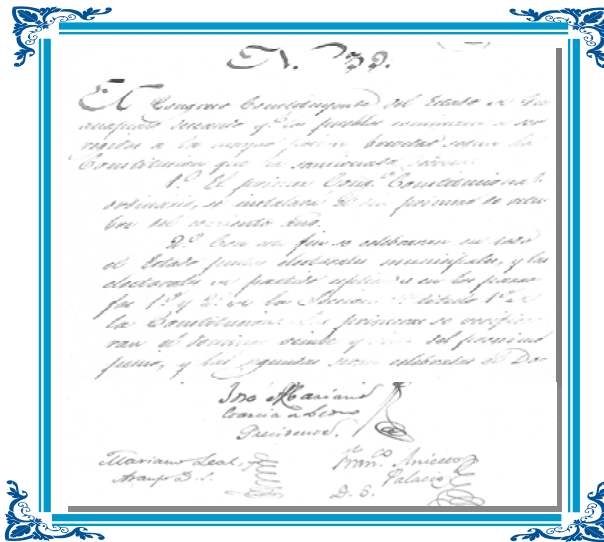 N. 39.
El Congreso Constituyente del Estado de Gua
najuato deseando q.e los pueblos comiencen a
la mayor segun la
Constitucion que ha sancionado
1.º El primer Cong.º Constitucional
ordinario, se instalará el dia primero de octu
bre del corriente año.
2.º Con este fin se celebraran en todo
el Estado juntas electorales municipales, y las
electorales de partido en los parra
fos 1.º y 2.º de la Seccion titulo 1.º de
la Constitucion. Las primeras se verifica
ran el domingo veinte y del proximo
Junio, y las segundas seran celebradas el Do
José Mariano
Garcia de Leon
Presidente.
Mariano Leal, y
Araujo D. S.
Fran.co Aniceto
Palacios
D. S.